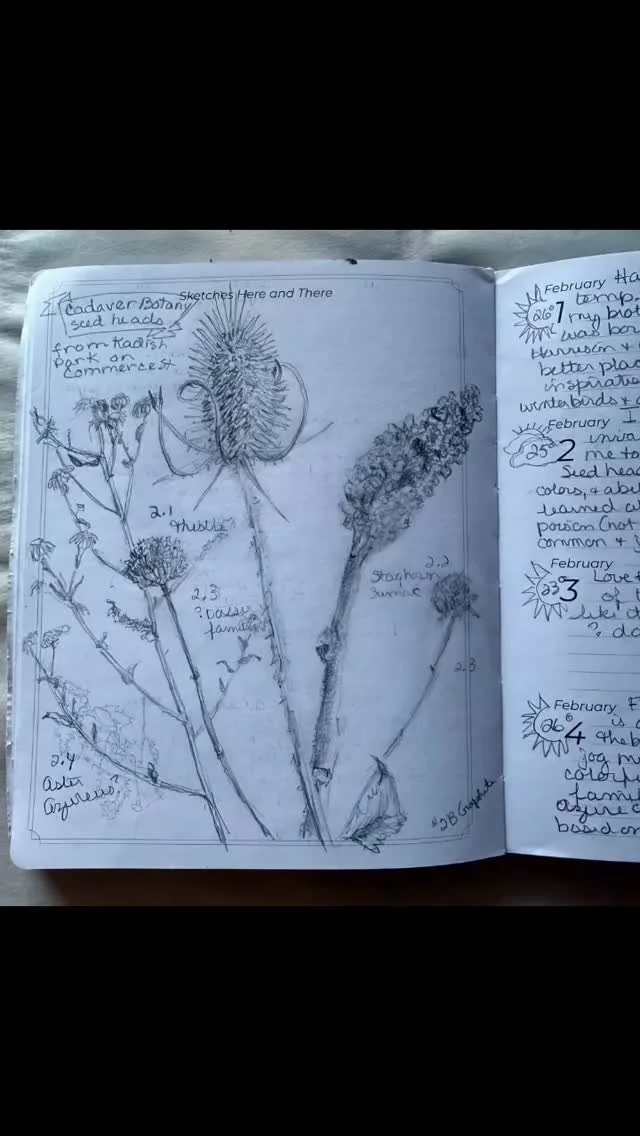 Cadaver Botany
seed heads
Sketches Here and There
from Kadish
Park on
Commerce St
2.1
thistle?
2.3
? Daisy
family
2.2
Staghorn
Sumac
2.3
2.4
Aster
Azureus?
#2B Graphite
February Ha
26° 1 temp
my brot
was bor
Harrison &
better plac
inspiratio
winterbirds &
February I
25° 2 invi
me to
Seed head
colors, &
learned a
poison (not
common &
February
23° 3 Love
of
like d
? da
February F
26° 4 is a
the b
jog m
colorf
famil
azure
based on